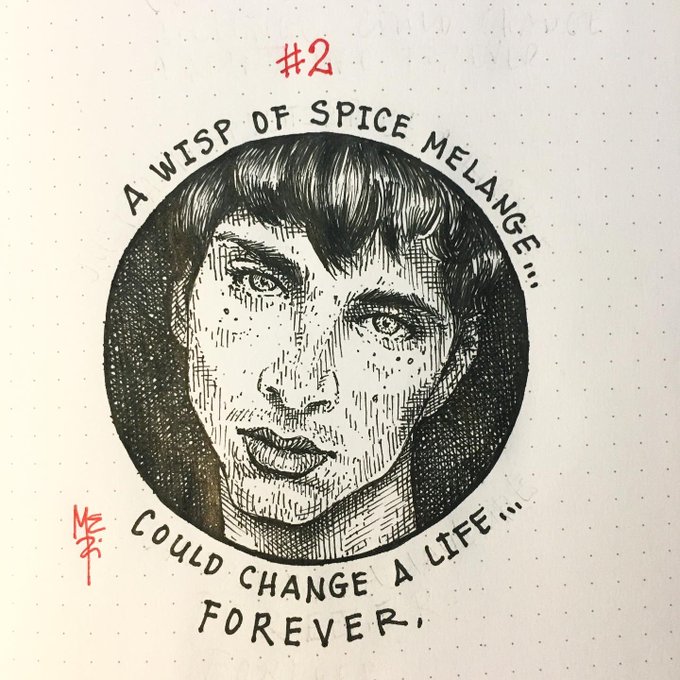 #2
A WISP OF SPICE MELANGE...
COULD CHANGE A LIFE...
FOREVER.